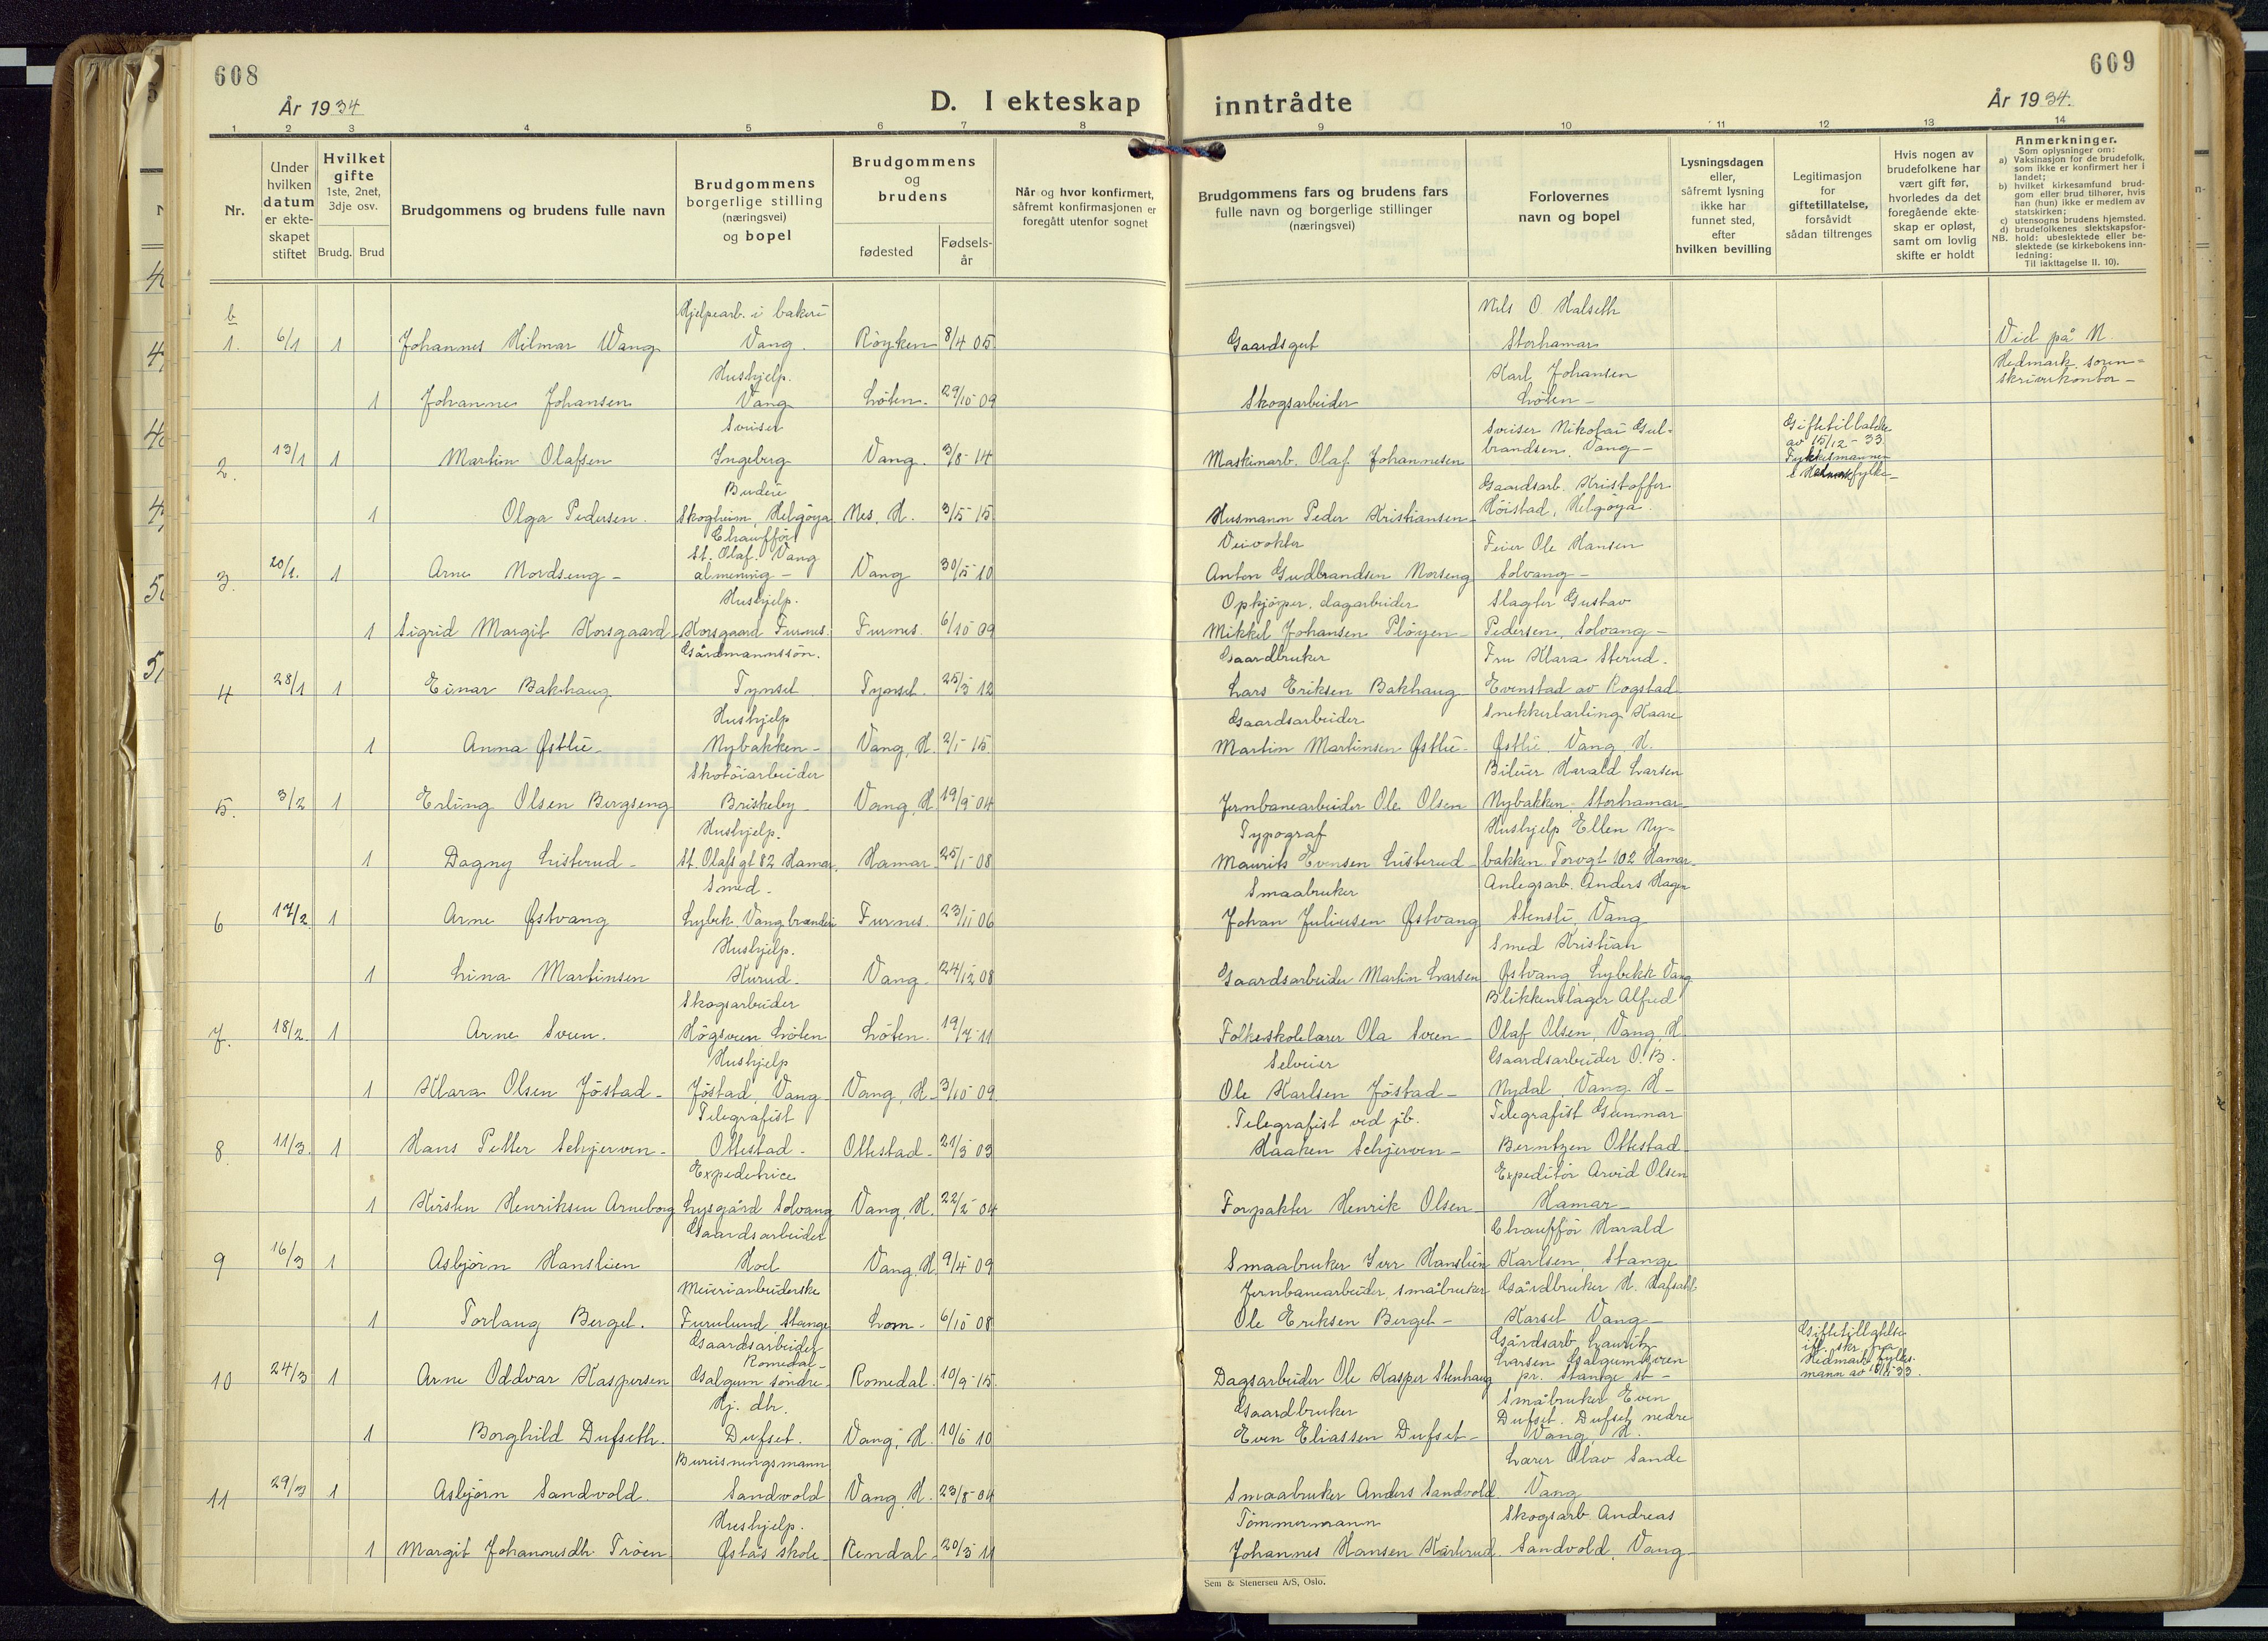 608
609
År 1934
D. I ekteskap inntrådte
År 1934.
1 2 3 4 5 6 7 8 9 10 11 12 13 14
Nr.
Under hvilken datum er ekteskapet stiftet
Hvilket gifte 1ste, 2net, 3dje osv.
Brudg. Brud
Brudgommens og brudens fulle navn
Brudgommens borgerlige stilling (næringsvei) og bopel
Brudgommens og brudens
fødested
Fødselsår
Når og hvor konfirmert, såfremt konfirmasjonen er foregått utenfor sognet
Brudgommens fars og brudens fars fulle navn og borgerlige stillinger (næringsvei)
Forlovernes navn og bopel
Lysningsdagen eller, såfremt lysning ikke har funnet sted, efter hvilken bevilling
Legitimasjon for giftetillatelse, forsåvidt sådan tiltrenges
Hvis nogen av brudefolkene har vært gift før, hvorledes da det foregående ekteskap er opløst, samt om lovlig skifte er holdt
Anmerkninger.
Som oplysninger om:
a) Vaksinasjon for de brudefolk, som ikke er konfirmert her i landet;
b) hvilket kirkesamfund brudgom eller brud tilhører, hvis han (hun) ikke er medlem av statskirken;
c) utensogns brudens hjemsted.
d) brudefolkenes slektskapsforhold: ubeslektede eller beslektede (se kirkebokens innledning:
NB.
Til iakttagelse II. 10).
b
Hjelpearb. i bakeri Nils O Halseth
1. 6/1 1 Johannes Hilmar Wang Vang. Röyken 8/4 05 Gaardsgut Storhamar Vied på N.
Hushjelp. Karl Johansen Hedmark soren-
1 Johanne Johansen Vang Löten. 29/10 09 Skogsarbeider Löten - skriverkontor -
Sveiser Sveiser Nikolai Gul- Giftetillatelse
2. 13/1 1 Martin Olafsen Ingeberg Vang. 3/8 14 Maskinarb. Olaf Johannesen brandsen. Vang - av 15/12-33 Fylkesmannen
Budeie Gaardsarb. Kristoffer i Hedmark fylke -
1 Olga Pedersen. Skogheim, Helgöya Nes, H. 3/5 15 Husmann Peder Kristiansen Höistad, Helgöya.
Chaufför Veivokter Feier Ole Hansen
3. 20/1. 1 Arne Nordseng - St. Olaf. Vang almening - Vang 30/5 10 Anton Gudbrandsen Norseng Solvang -
Hushjelp. Opkjöper, dagarbeider Slagter Gustav
1 Sigrid Margit Korsgaard Korsgaard Furnes. Furnes. 6/10 09 Mikkel Johansen Plöyen - Pedersen, Solvang -
Gårdmannssön. Gaardbruker Fru Klara Sterud.
4 28/1 1 Einar Bakhaug Tynset Tynset. 25/3 12 Lars Eriksen Bakhaug Evenstad av Rogstad
Hushjelp Gaardsarbeider Snekkerlærling Kaare
1 Anna Østlie - Nybakken - Vang, H. 2/1 15 Martin Martinsen Østlie - Østlie. Vang, H.
Skotöiarbeider Bileier Harald Larsen
5. 3/2 1 Erling Olsen Bergseng Briskeby - Vang, H 19/9 04 Jernbanearbeider Ole Olsen Nybakken. Storhamar -
Hushjelp. Typograf Hushjelp Ellen Ny-
1 Dagny Listerud - St. Olafs gt 82 Hamar. Hamar 25/1 08 Maurits Evensen Listerud - bakken Torvgt 102 Hamar -
Smed - Smaabruker Anlegsarb. Anders Hagen
6 17/2. 1 Arne Østvang Lybek. Vang brænderi Furnes. 23/11 06 Johan Juliusen Østvang Stensli, Vang
Hushjelp. Smed Kristian
1 Lina Martinsen Kurud - Vang 24/12 08 Gaardsarbeider Martin Larsen Østvang Lybekk Vang
Skogsarbeider Blikkenslager Alfred
7. 18/2. 1 Arne Sveen. Högsveen, Löten Löten. 19/7 11 Folkeskolelærer Ola Sveen - Olaf Olsen, Vang, H.
Hushjelp Selveier Gaardsarbeider O. B.
1 Klara Olsen Jöstad - Jöstad, Vang Vang, H - 3/10 09 Ole Karlsen Jöstad - Nydal, Vang H -
Telegrafist Telegrafist ved jb. Telegrafist Gunnar
8. 11/3. 1 Hans Petter Schjerven - Ottestad - Ottestad - 21/3 03 Haaken Schjerven - Berntzen Ottestad
Expeditrice Expeditör Arvid Olsen
1 Kirsten Henriksen Arneborg Lysgård Solvang Vang, H. 22/2 04 Forpakter Henrik Olsen Hamar -
Gaardsarbeider Chaufför Harald
9 16/3 1 Asbjörn Hanslien Hoel Vang, H 9/4 09 Smaabruker Iver Hanslien Karlsen, Stange
Meieriarbeiderske Jernbanearbeider, småbruker Gårdbruker H. Hafsahl
1 Torlaug Berget. Furulund Stange Lom - 6/10 08 Ole Eriksen Berget - Karset Vang -
Gaardsarbeider Gårdsarb Lauritz Giftetillatelse
Romedal - Larsen Galgum övre ifl. skr fra Hedmark fylkes-
10 24/3 1 Arne Oddvar Kaspersen Galgum söndre Romedal. 10/9 15. Dagsarbeider Ole Kasper Stenhaug pr. Stange st - mann av
Hj. dtr. Gaardbruker Småbruker Even
1 Borghild Dufseth. Dufset. Vang, H. 10/6 10 Even Eliassen Dufset - Dufset. Dufset nedre Vang, H.
Bureisningsmann Lærer Olav Sande
11 29/3 1 Asbjörn Sandvold. Sandvold Vang, H. 23/8 04 Smaabruker Anders Sandvold Vang
Hushjelp. Tömmermann Skogsarb. Andreas
1 Margit Johannesdtr. Tröen Østås skole Rendal - 20/3 11 Johannes Hansen Sandvold, Vang
Sem & Stenersen A/S, Oslo.